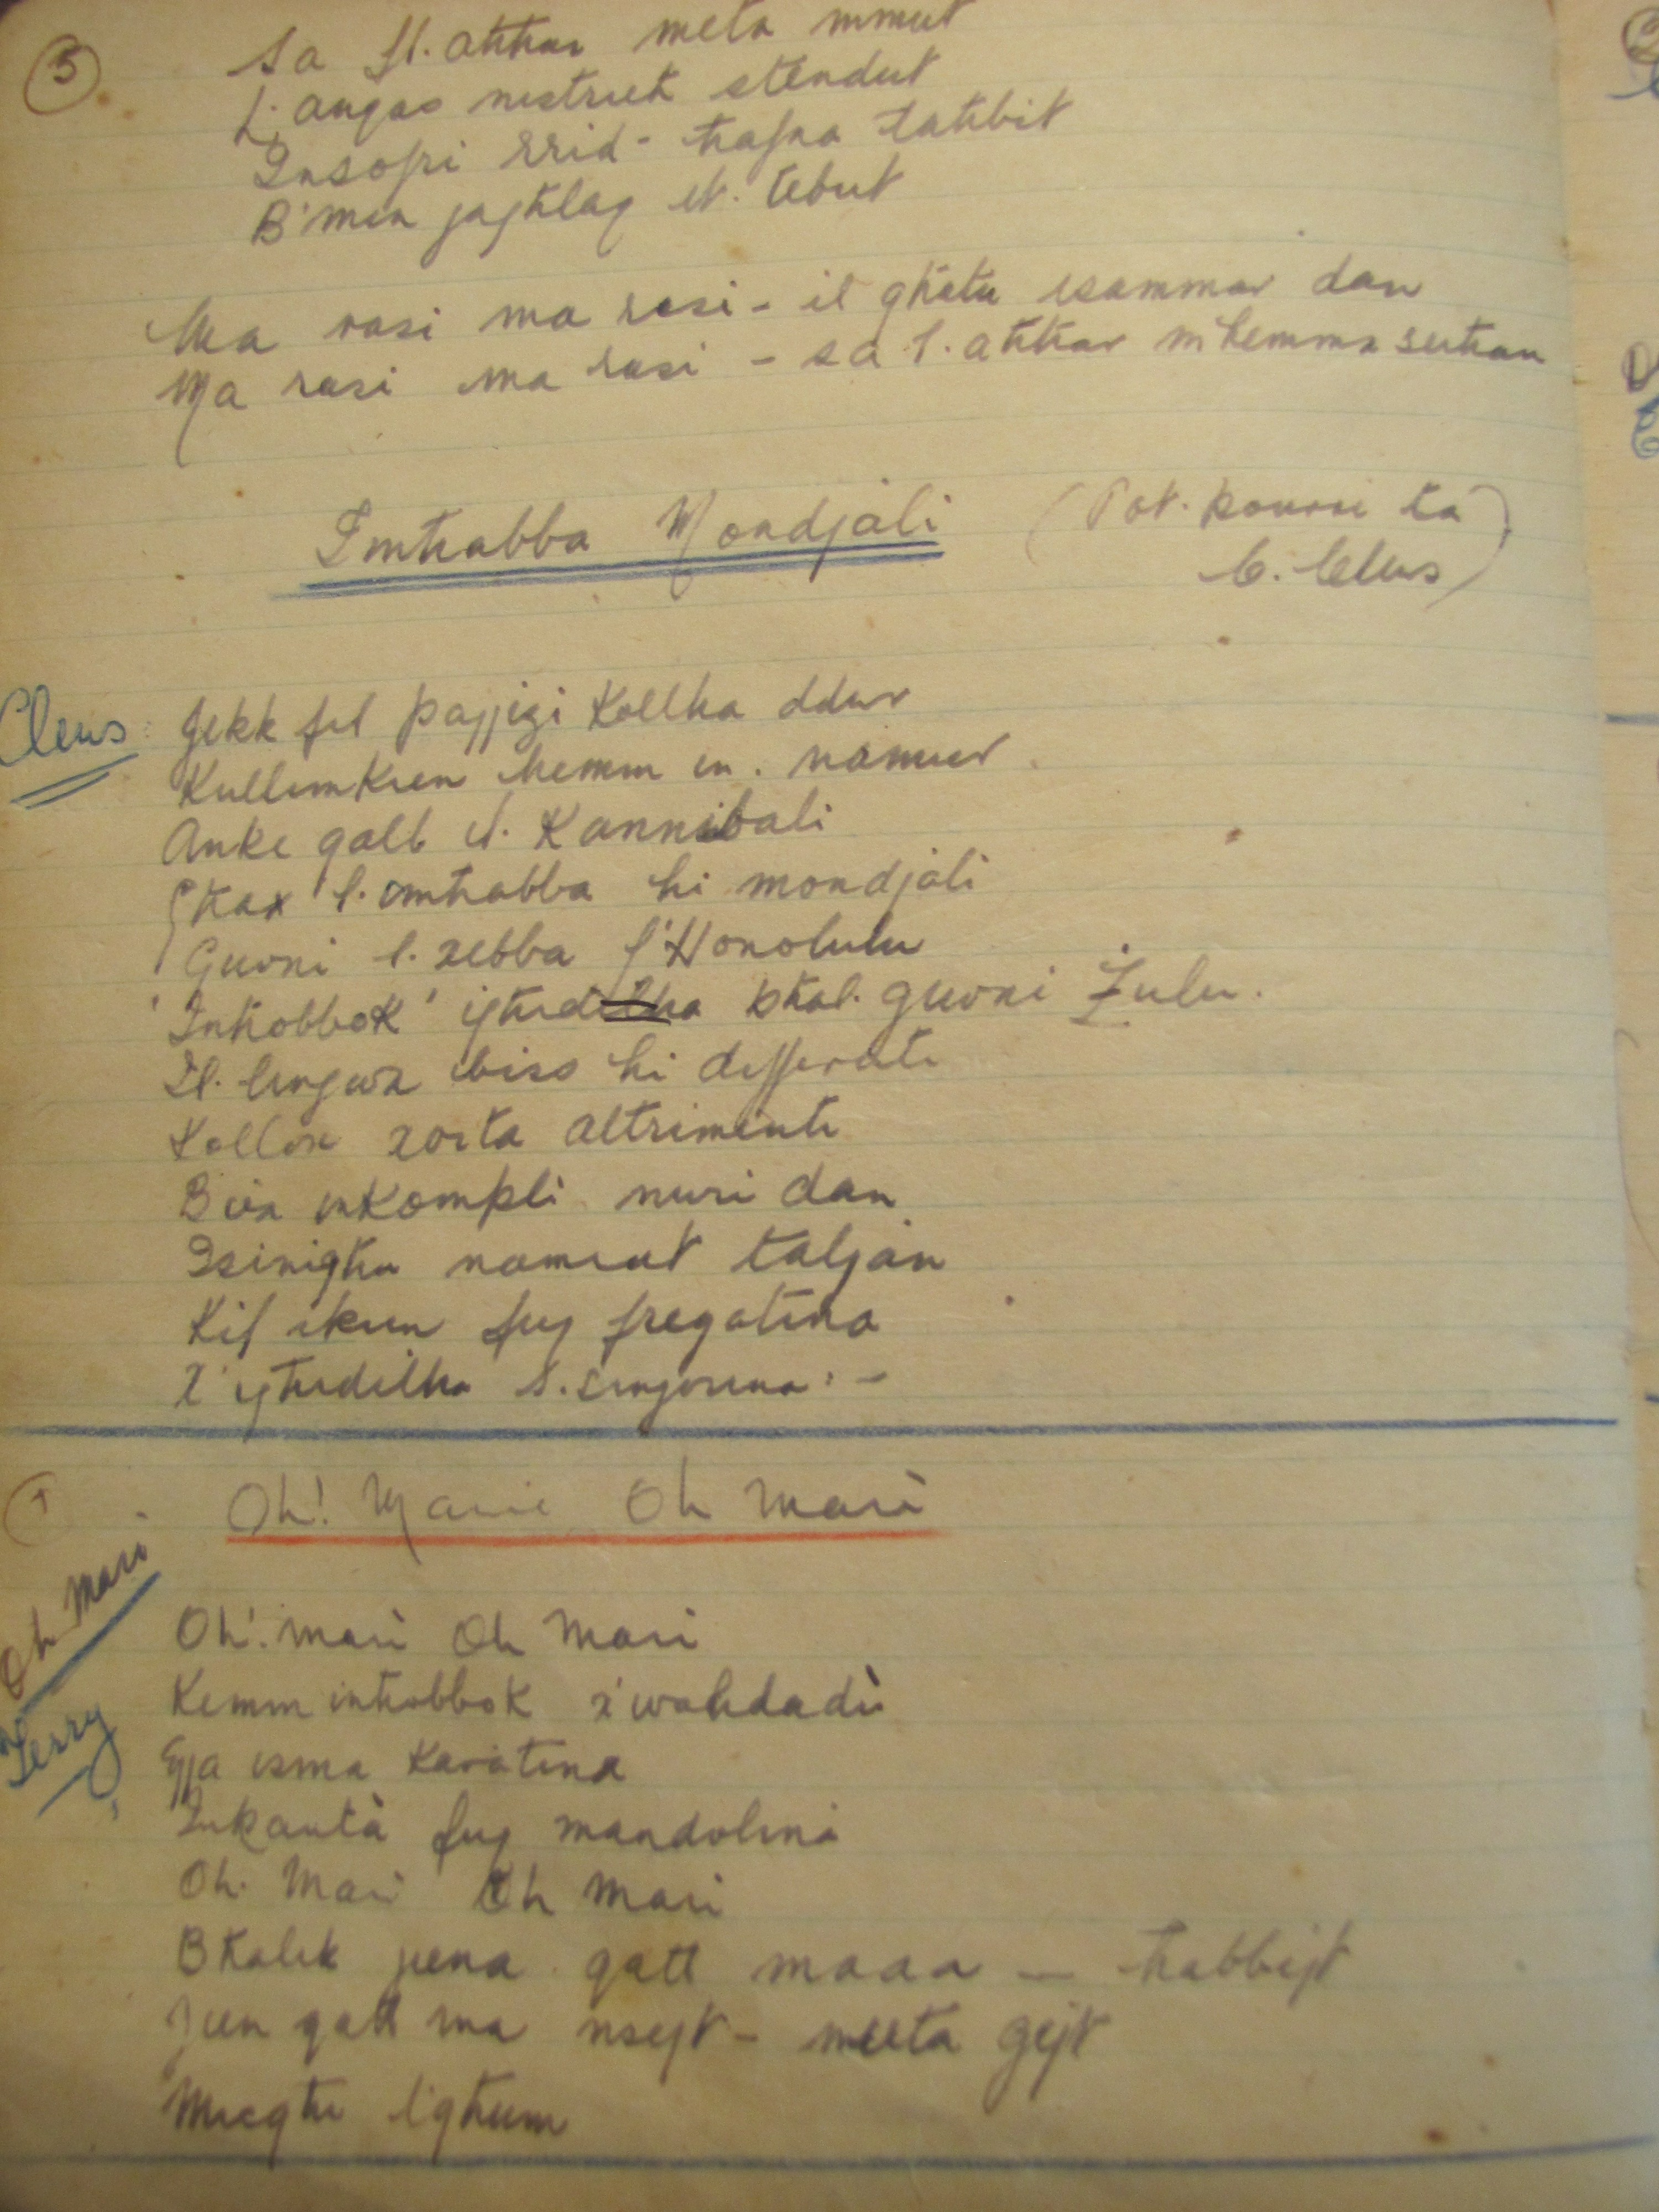 5
Sa fl. aħħar meta mmut
L. angas mistieħ stendut
Insofri rrid - ħafna taħbit
B'men jagħlaq it. tebut
Ma rasi ma rasi - il għatu isammar dan
Ma rasi ma rasi - sa l. aħħar mhemmx sultan
Imħabba Mondjali
(Pot. pourri ta'
C. Clews)
Clews:
Jekk fil pajjizi kollha ddur
Kullimkien hemm in. namur
Anke qalb il. Kannibali
Għax l. imħabba hi mondjali
Guvni l. xebba f'Honolulu
'Inħobbok' igħidilha bħal. guvni Żulu.
Il. lingwa biss hi differenti
Kollox xorta altrimenti
Biex inkompli nuri dan
Isimgħu namrat taljan
Kif ikun fuq fregatina
X'igħidilha s. sinjorina: -
1
Oh! Marie Oh Marì
Oh Mari
Terry
Oh! Marì Oh Mari
Kemm inħobbok x'waħdadi
Ejja isma karatina
Inkantà fuq mandolina
Oh. Mari Oh Mari
Bħalek jiena qatt maaa — ħabbejt
Jien qatt ma nsejt - meeta gejt
Miegħi l'għum